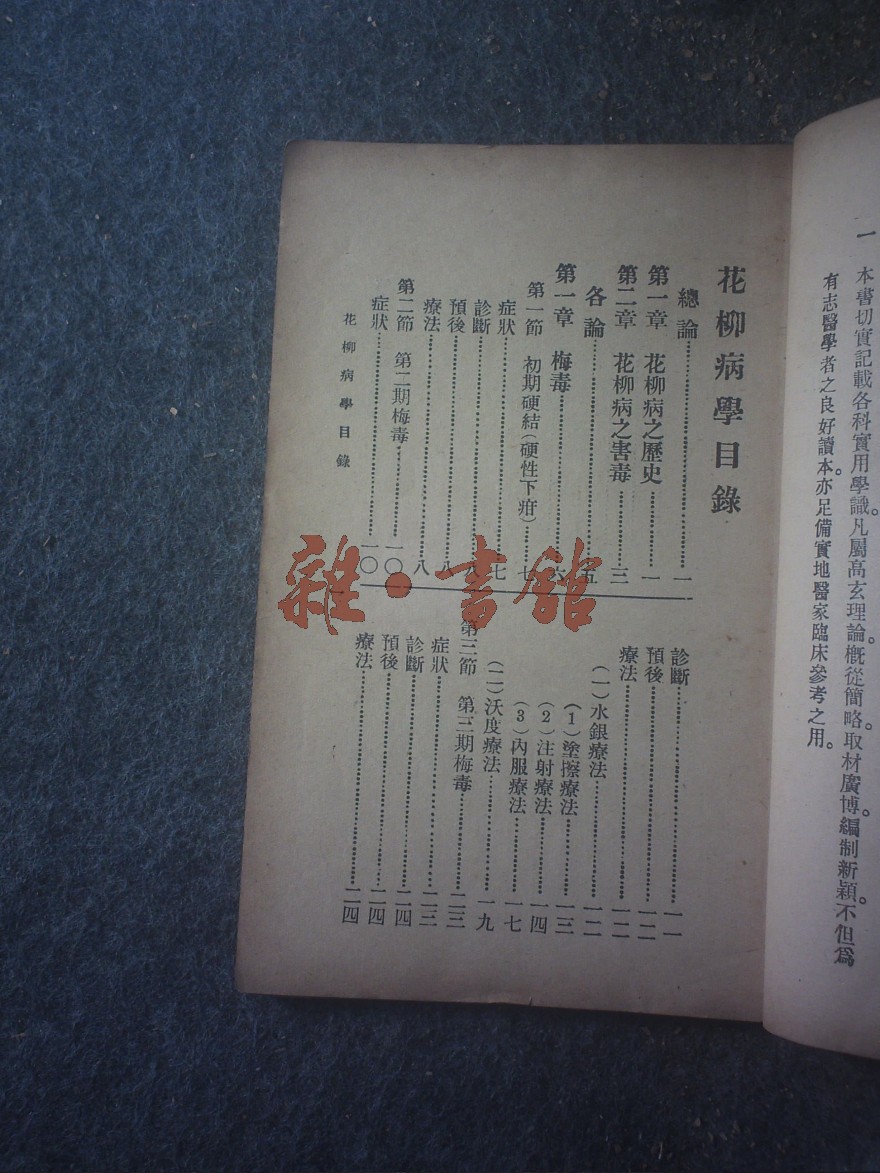 一 本書切實記載各科實用學識。凡屬高玄理論。概從簡略。取材廣博。編制新穎。不但爲
有志醫學者之良好讀本。亦足備實地醫家臨床參考之用。
花柳病學目錄
總論……一
第一章 花柳病之歷史……一
第二章 花柳病之害毒……三
各論……五
第一章 梅毒……六
第一節 初期硬結(硬性下疳)……七
症狀……七
診斷……八
預後……八
療法……八
第二節 第二期梅毒……一〇
症狀……一〇
診斷……一一
預後……一二
療法……一二
(一)水銀療法……一二
(1)塗擦療法……一三
(2)注射療法……一四
(3)內服療法……一七
(二)沃度療法……一九
第三節 第三期梅毒……二三
症狀……二三
診斷……二四
預後……二四
療法……二四
花柳病學目錄
雜·書館